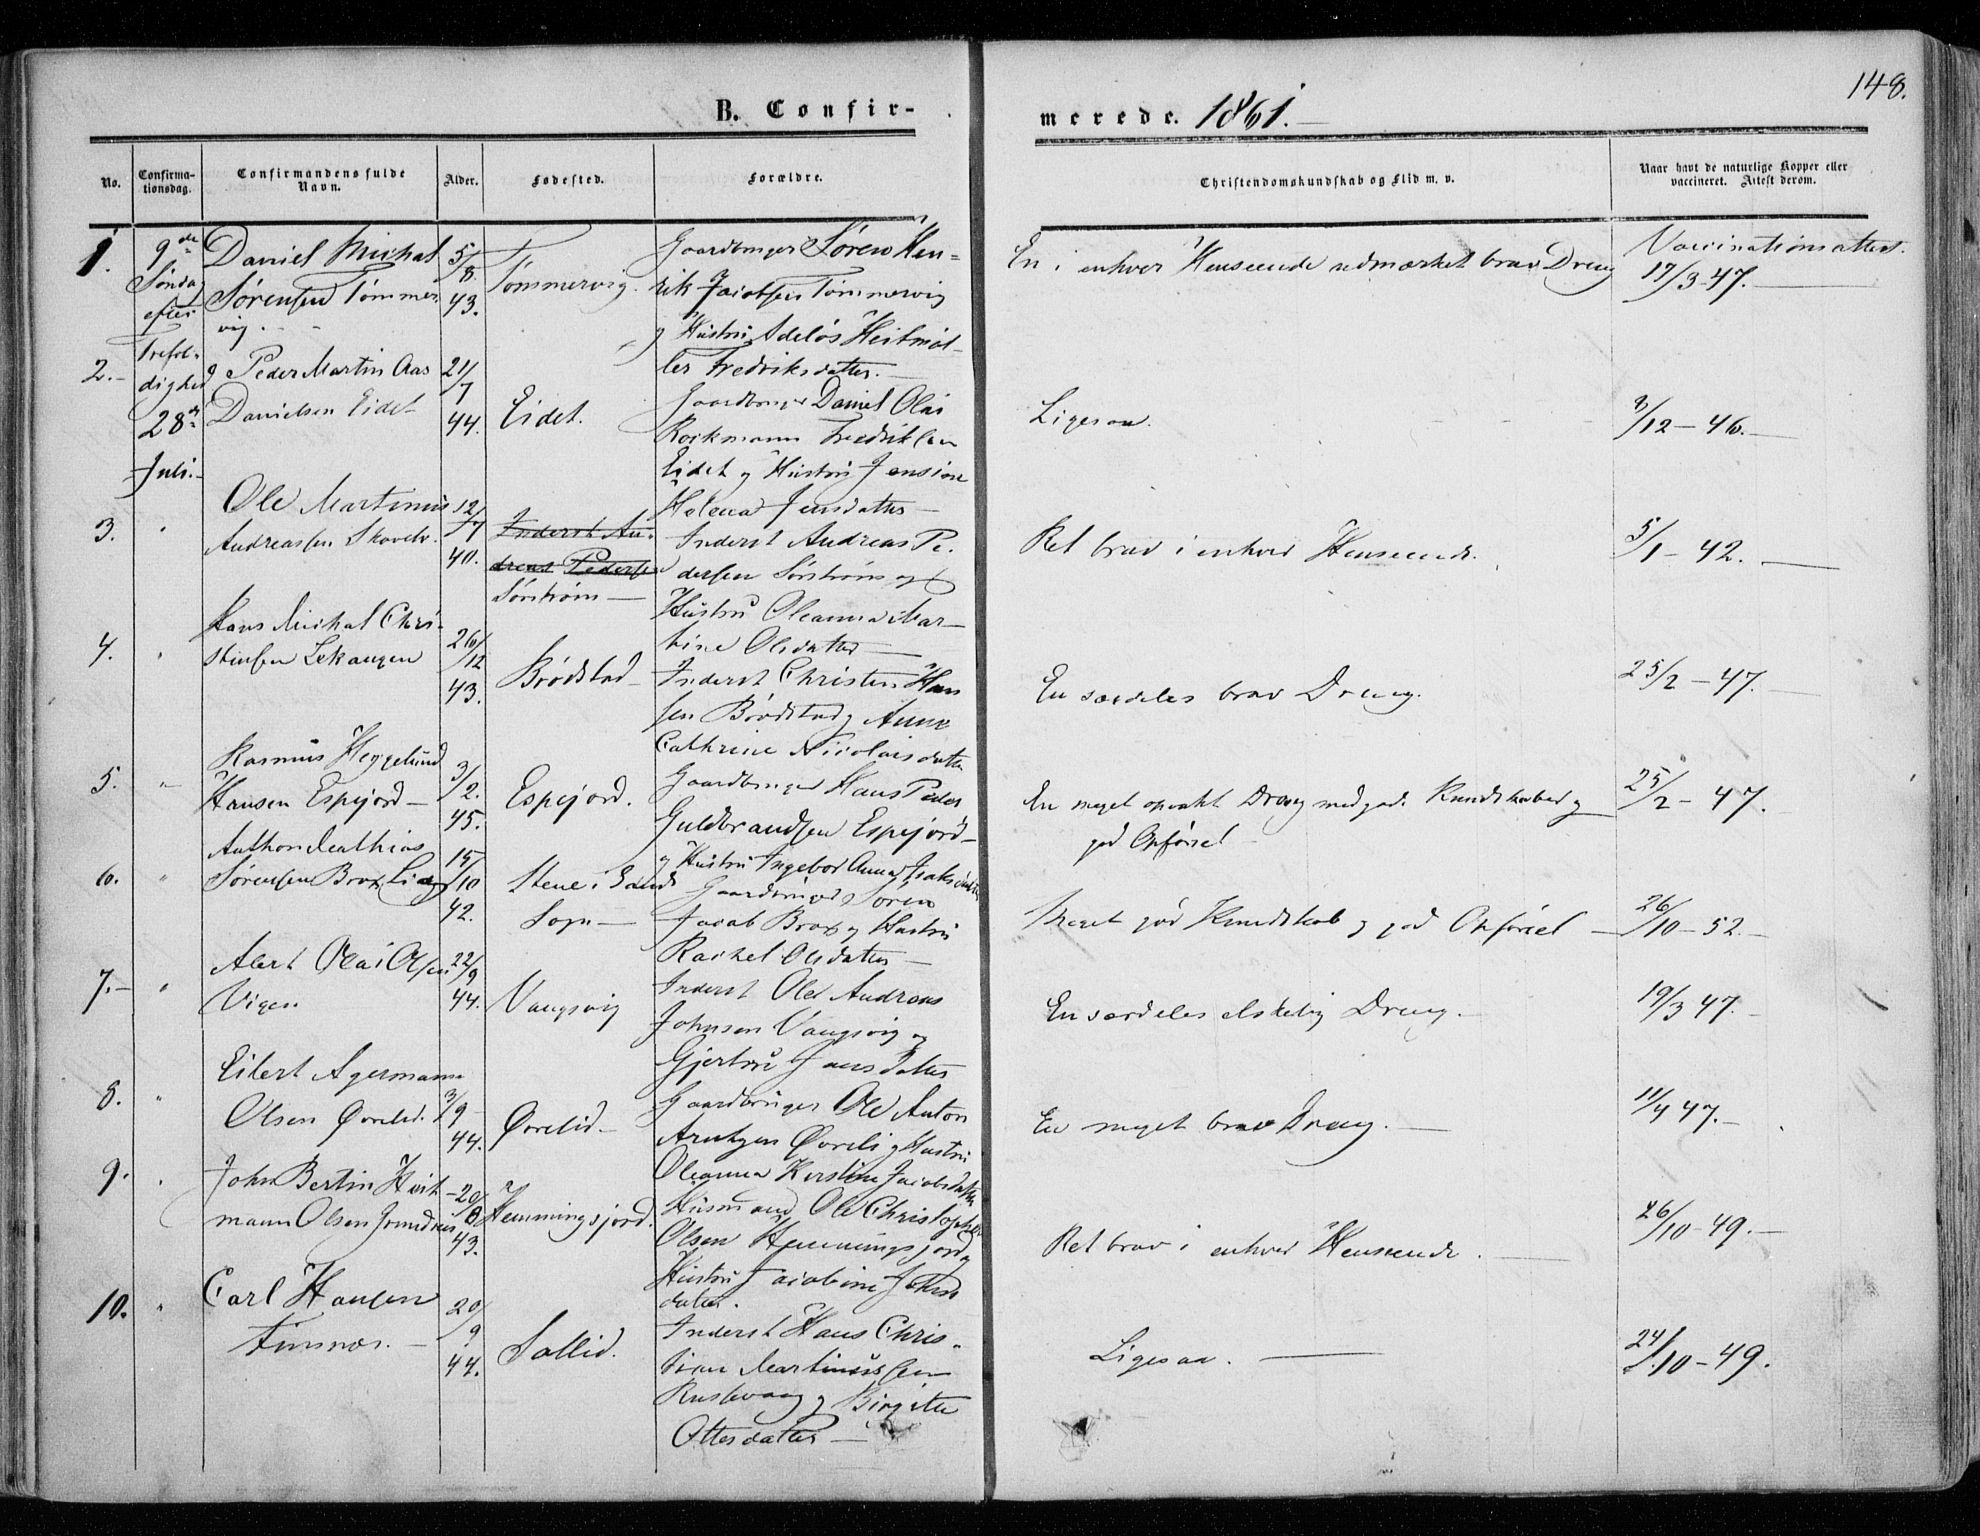 148.
B. Confir-
merede. 1861.
No.
Confirma-
tionsdag.
Confirmandens fulde
Navn.
Alder.
Fødested.
Forældre.
Christendomskundskab og Flid m. v.
Naar havt de naturlige Kopper eller
vaccineret. Attest derom.
1.
9de
Søndag
efter
Trefol-
dighed
28de
Juli.
Daniel Michal
Sørensen Tømmer
vig.
5/8
43.
Tømmervig.
Gaardbruger Søren Hen-
rik Jacobsen Tømmervig
g Hustru Adelus Heitmøl-
ler Fredriksdatter.
En i enhver Henseende udmærket brav Dreng
Vaccinationsattest.
17/3 47.
2.
Peder Martin Aas
Danielsen Eidet
21/7
44.
Eidet.
Gaardbruger Daniel Olai
Rockmann Fredriksen
Eidet g Hustru Jensine
Helena Jensdatter
Ligesaa.
/12 - 46.
3.
"
Ole Martinus
Andreassen Skovelv.
12/7
40.
Inderst An-
dreas Pedersen
Sørstrøm
Inderst Andreas Pe-
dersen Sørstrøm og
Hustru Oleanna Mar-
tine Olsdatter
Ret brav i enhver Henseende.
5/1 - 42.
4.
"
Hans Michal Chri-
stensen Lekangen
26/12
43.
Brødstad
Inderst Christen Han
sen Brødstad g Anne
Cathrine Nicolaisdatter
En særdeles brav Dreng.
25/2 - 47.
5.
"
Rasmus Heggelund
Hansen Espejord
3/2.
45.
Espejord.
Gaardbruger Hans Peder
Guldbrandsen Espejord
g Hustru Ingebor Anna Isaksdatter
En meget opvakt Dreng med gode Kundskaber g
god Opførsel
25/2 - 47.
6.
"
Anthon Mathias
Sørensen Brox Li
15/10
42.
Stene i
Sogn
Gaardbruger Søren
Jacob Brox g Hustru
Rachel Olsdatter
Meget god Kundskab g god Opførsel
26/10 - 52.
7.
"
Alert Olai Olsen
Vigen
22/9
44.
Vangsvig
Inderst Ole Andreas
Johnsen Vangsvig og
Gjertru Jensdatter
En særdeles elskelig Dreng.
19/3 47.
8.
"
Eilert Agermann
Olsen Øvrelid.
3/9
44.
Øvrelid
Gaardbruger Ole Anton
Arntzen Øvreli g Hustru
Oleanna Kirstine Jacobsdatter
En meget brav Dreng.
11/4 47.
9.
"
John Bertin Heit
mann Olsen
20/8
43.
Hemmingsjord.
Husmand Ole Christopher
Olsen Hemmingsjord g
Hustru Jacobine Johns
datter.
Ret brav i enhver Henseende.
26/10 - 49.
10.
"
Carl Hansen
Finsnæs.
20/9
44.
Sollid.
Inderst Hans Chris-
tian Martinussen
Rusevaag g Birgitte
Ottersdatter
Ligesaa.
24/10 - 49.